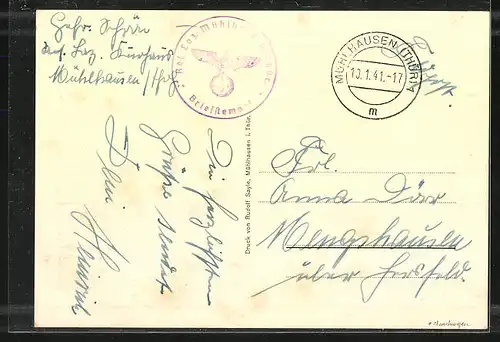 Gefr. Schön
Res. Laz. Kurhaus
Mühlhausen/Thür
Res. Laz. Mühlhausen
Briefstempel
MÜHLHAUSEN (THÜR)
10.1.41.-17
m
Die herzlichsten
Grüße sendet
Dein Heinrich
Druck von Rudolf Sayle, Mühlhausen i. Thür.
Frl.
Anna Dörr
Mengshausen
über Hersfeld.